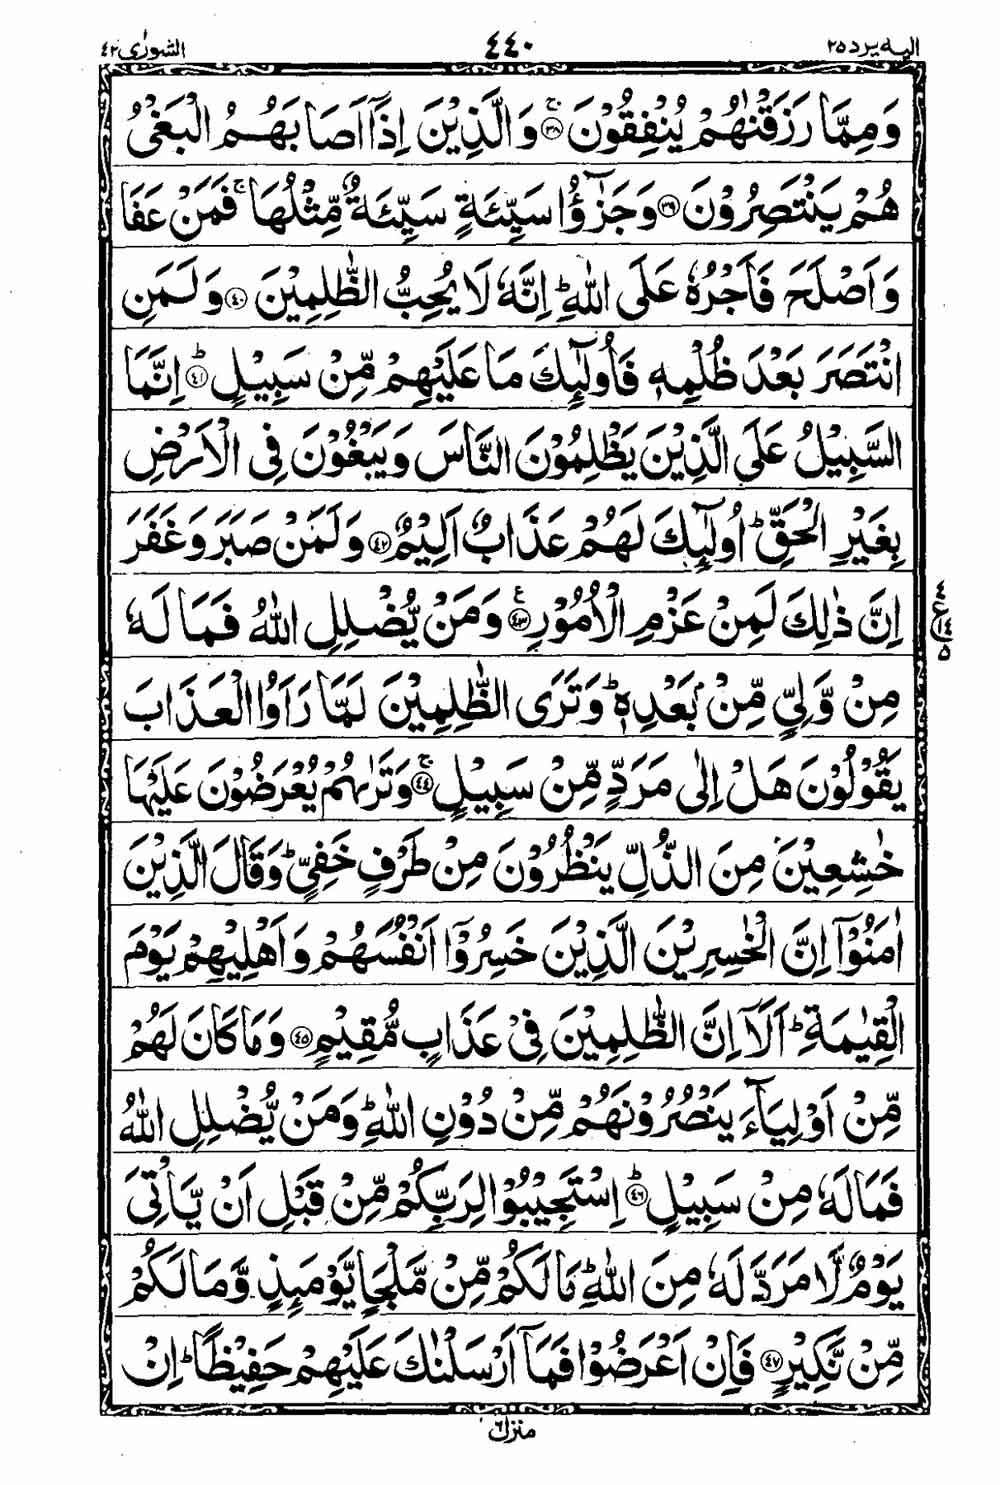 اليه يرد ٢٥ ٤٤٠ الشورٰى ٤٢
وَمِمَّا رَزَقْنٰهُمْ يُنْفِقُوْنَ ۚ‏﴿۳۸﴾ وَالَّذِيْنَ اِذَاۤ اَصَابَهُمُ الْبَغْىُ
هُمْ يَنْتَصِرُوْنَ ﴿۳۹﴾ وَجَزٰٓؤُا سَيِّئَةٍ سَيِّئَةٌ مِّثْلُهَا ۚ فَمَنْ عَفَا
وَاَصْلَحَ فَاَجْرُهٗ عَلَى اللّٰهِ ؕ اِنَّهٗ لَا يُحِبُّ الظّٰلِمِيْنَ ﴿۴۰﴾ وَلَمَنِ
انْتَصَرَ بَعْدَ ظُلْمِهٖ فَاُولٰٓئِكَ مَا عَلَيْهِمْ مِّنْ سَبِيْلٍ ؕ ﴿۴۱﴾ اِنَّمَا
السَّبِيْلُ عَلَى الَّذِيْنَ يَظْلِمُوْنَ النَّاسَ وَيَبْغُوْنَ فِى الْاَرْضِ
بِغَيْرِ الْحَقِّ ؕ اُولٰٓئِكَ لَهُمْ عَذَابٌ اَلِيْمٌ ﴿۴۲﴾ وَلَمَنْ صَبَرَ وَغَفَرَ
اِنَّ ذٰلِكَ لَمِنْ عَزْمِ الْاُمُوْرِ ﴿۴۳﴾ وَمَنْ يُّضْلِلِ اللّٰهُ فَمَا لَهٗ
مِنْ وَّلِىٍّ مِّنْۢ بَعْدِهٖ ؕ وَتَرَى الظّٰلِمِيْنَ لَمَّا رَاَوُا الْعَذَابَ
يَقُوْلُوْنَ هَلْ اِلٰى مَرَدٍّ مِّنْ سَبِيْلٍ ۚ ﴿۴۴﴾ وَتَرٰٮهُمْ يُعْرَضُوْنَ عَلَيْهَا
خٰشِعِيْنَ مِنَ الذُّلِّ يَنْظُرُوْنَ مِنْ طَرْفٍ خَفِىٍّ ؕ وَقَالَ الَّذِيْنَ
اٰمَنُوْۤا اِنَّ الْخٰسِرِيْنَ الَّذِيْنَ خَسِرُوْۤا اَنْفُسَهُمْ وَاَهْلِيْهِمْ يَوْمَ
الْقِيٰمَةِ ؕ اَلَاۤ اِنَّ الظّٰلِمِيْنَ فِىْ عَذَابٍ مُّقِيْمٍ ﴿۴۵﴾ وَمَا كَانَ لَهُمْ
مِّنْ اَوْلِيَآءَ يَنْصُرُوْنَهُمْ مِّنْ دُوْنِ اللّٰهِ ؕ وَمَنْ يُّضْلِلِ اللّٰهُ
فَمَا لَهٗ مِنْ سَبِيْلٍ ؕ ﴿۴۶﴾ اِسْتَجِيْبُوْا لِرَبِّكُمْ مِّنْ قَبْلِ اَنْ يَّاْتِىَ
يَوْمٌ لَّا مَرَدَّ لَهٗ مِنَ اللّٰهِ ؕ مَا لَكُمْ مِّنْ مَّلْجَاٍ يَّوْمَئِذٍ وَّمَا لَكُمْ
مِّنْ نَّكِيْرٍ ﴿۴۷﴾ فَاِنْ اَعْرَضُوْا فَمَاۤ اَرْسَلْنٰكَ عَلَيْهِمْ حَفِيْظًا ؕ اِنْ
٤
ع١٤
٥
منزل ٦